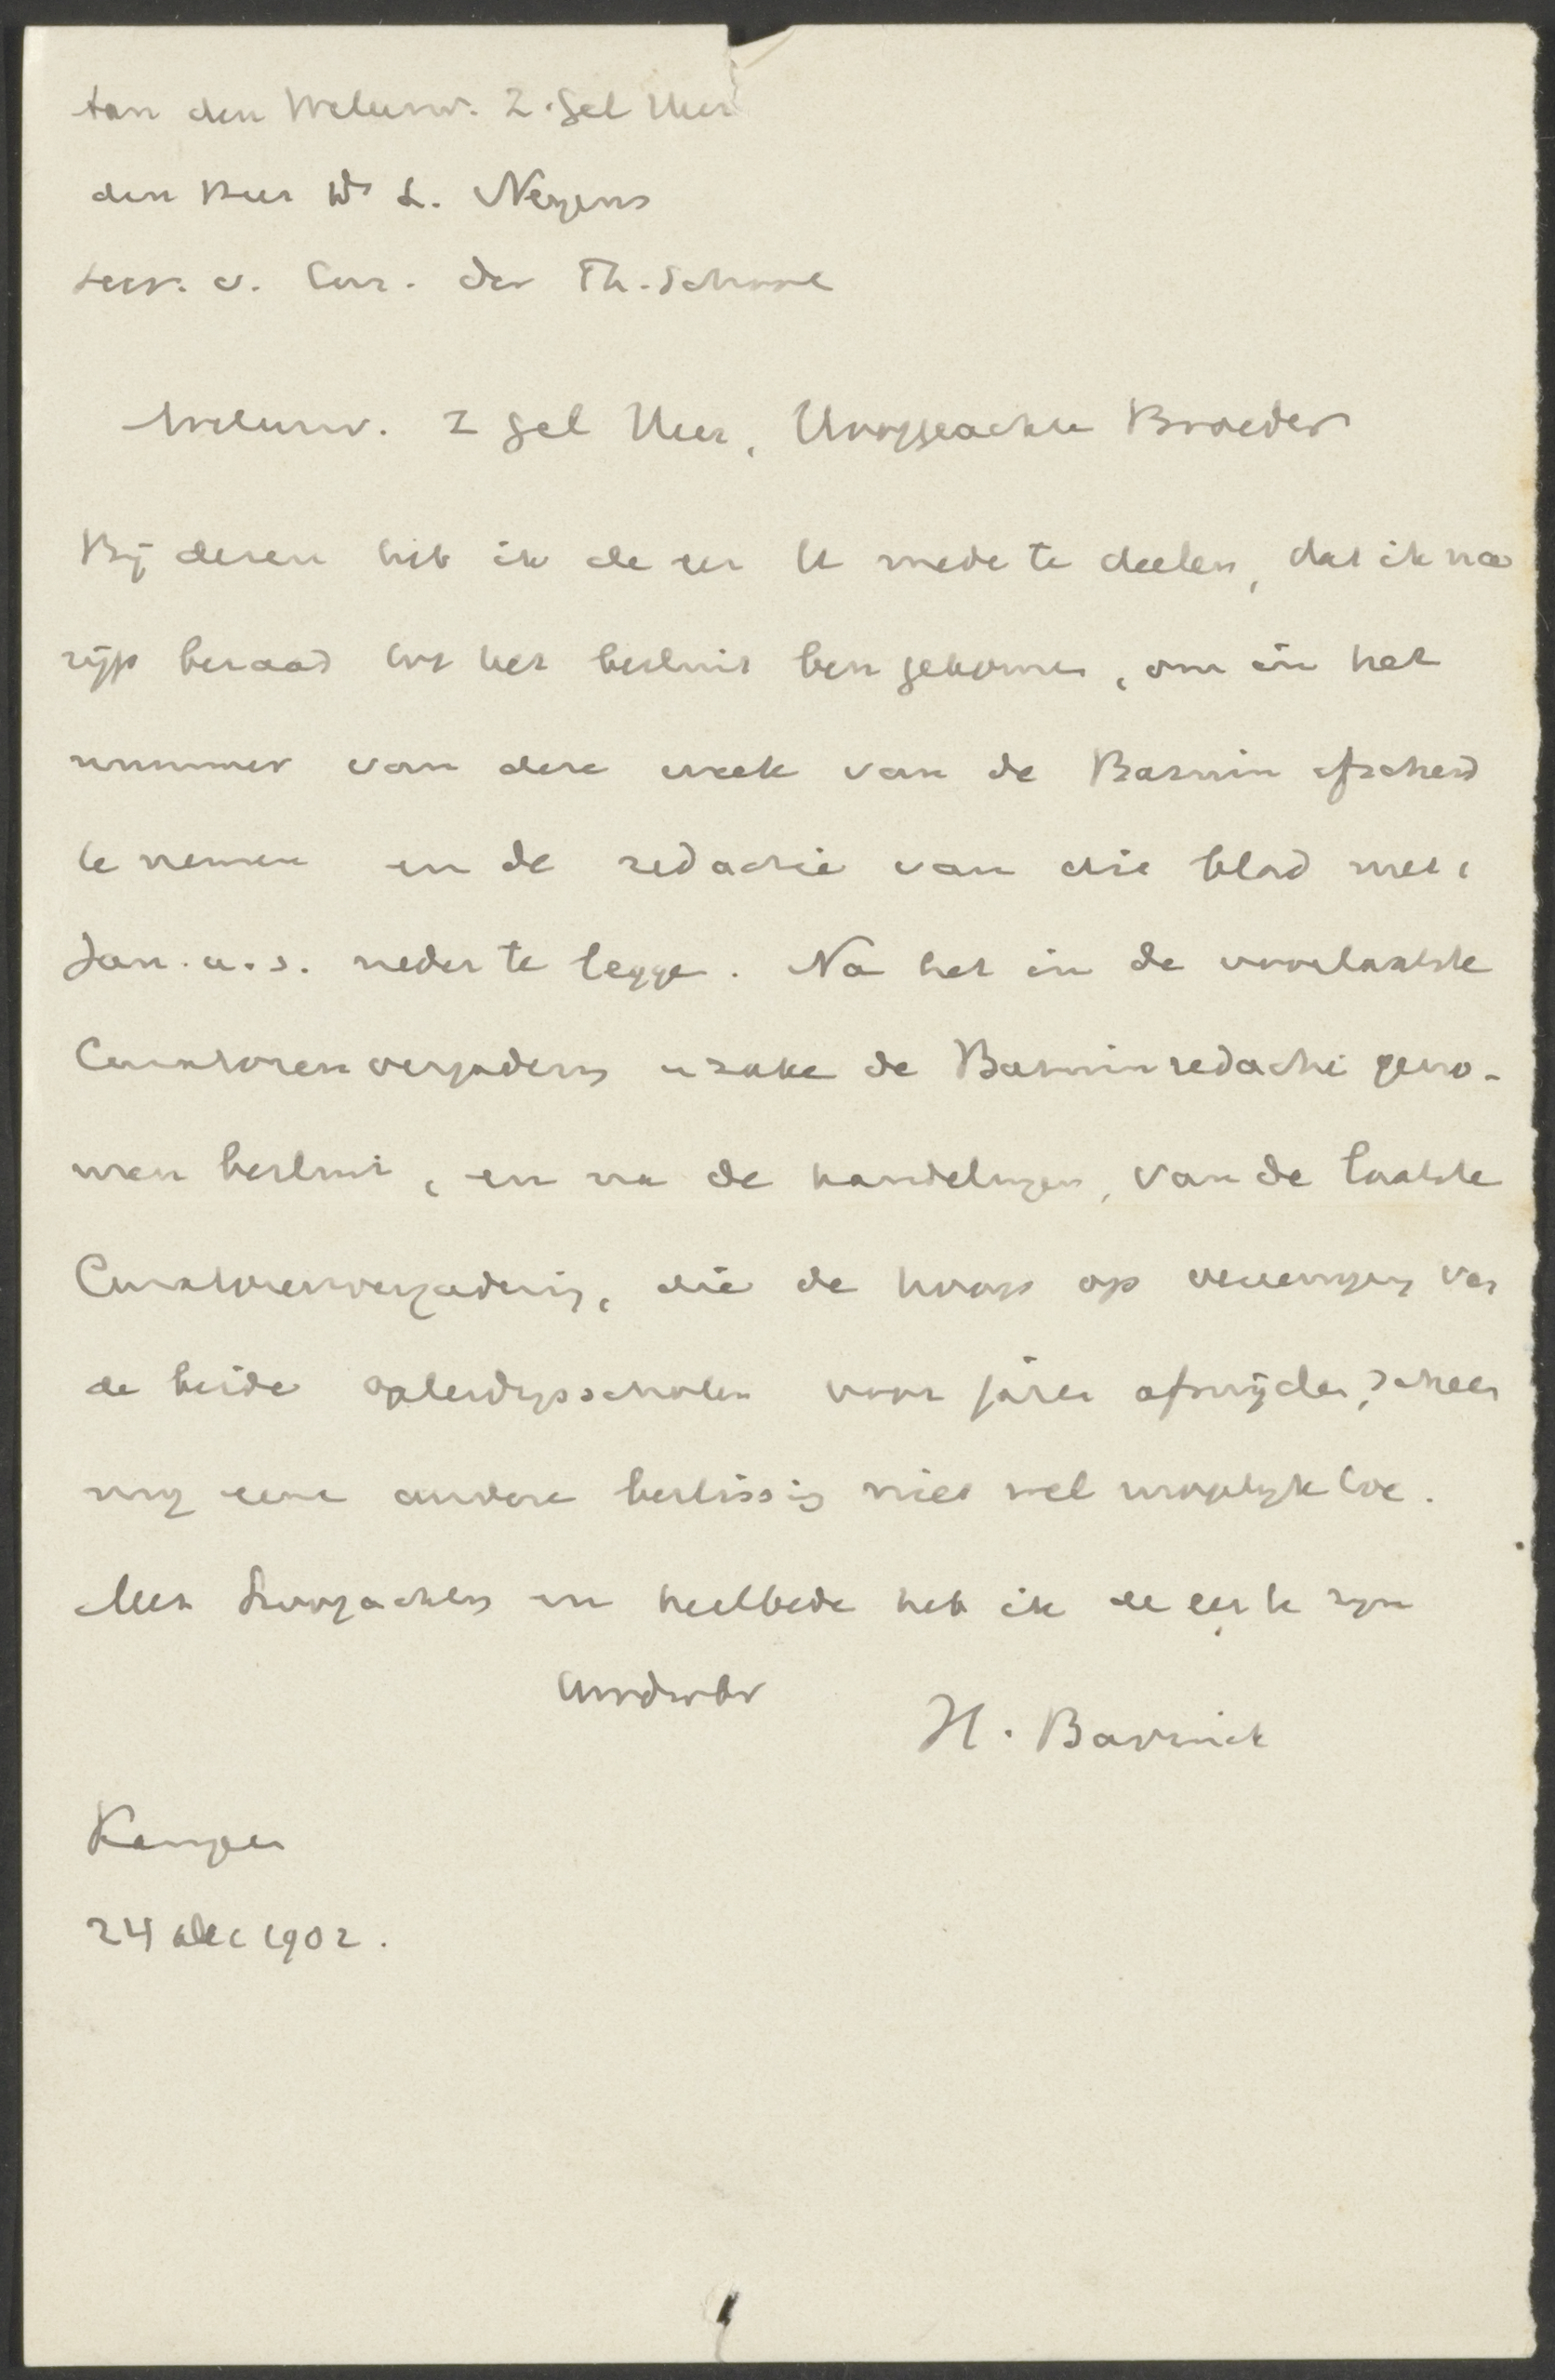 Aan den Weleerw. Z.Gel Heer
den Heer Ds L. Neijens
Secr. v. Cur. der Th. School
Weleerw. Z Gel Heer, Hooggeachte Broeder
Bij dezen heb ik de eer U mede te deelen, dat ik na
rijp beraad tot het besluit ben gekomen, om in het
nummer van deze week van de Bazuin afscheid
te nemen en de redactie van dit blad met 1
Jan. a.s. neder te leggen. Na het in de voorlaatste
Curatorenvergadering inzake de Bazuinredactie geno-
men besluit, en na de handelingen, van de laatste
Curatorenvergadering, die de hoop op vereeniging van
de beide opleidingsscholen voor jaren afsnijden, scheen
mij eene andere beslissing niet wel mogelijk toe.
Met hoogachting en heilbede heb ik de eer te zijn
Uw dw br
H. Bavinck
Kampen
24 Dec 1902.